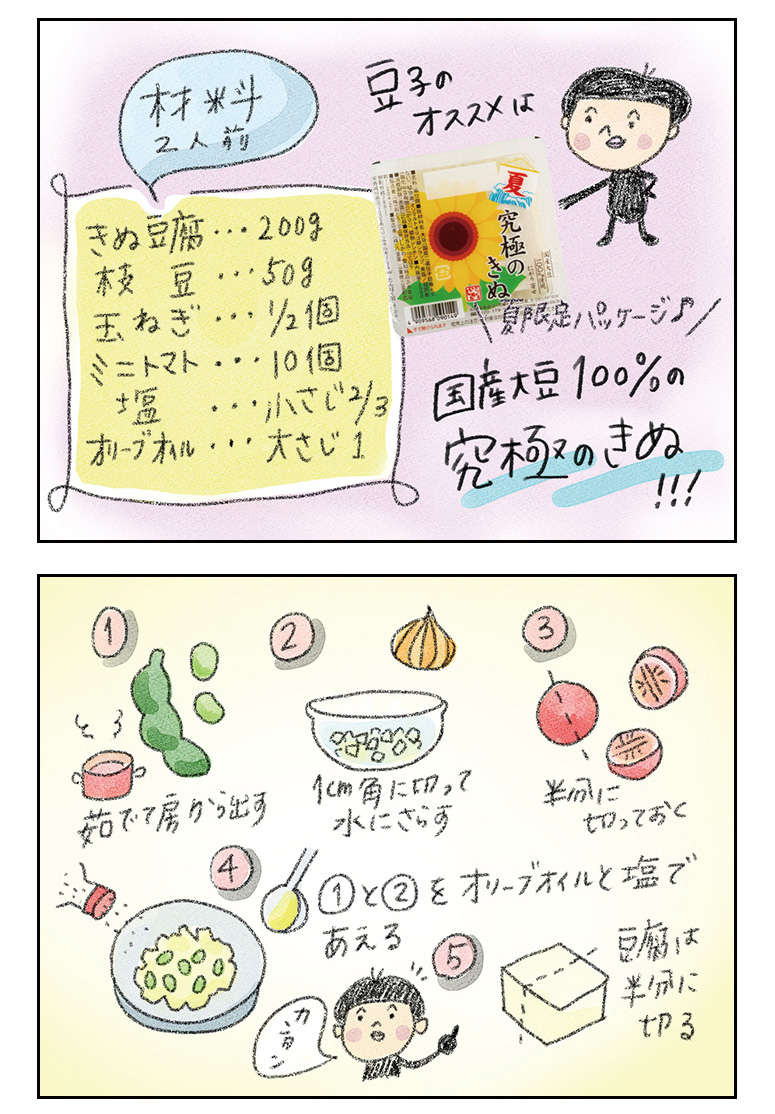 材料
2人前
豆子の
オススメは
きぬ豆腐・・・200g
枝豆・・・50g
玉ねぎ・・・1/2個
ミニトマト・・・10個
塩・・・小さじ2/3
オリーブオイル・・・大さじ1
夏
究極の
きぬ
夏限定パッケージ♪
国産大豆100%の
究極のきぬ
!!!
1
茹でて房から出す
2
1cm角に切って
水にさらす
3
半分に
切っておく
4
①と②をオリーブオイルと塩で
あえる
カンタン
5
豆腐は
半分に
切る